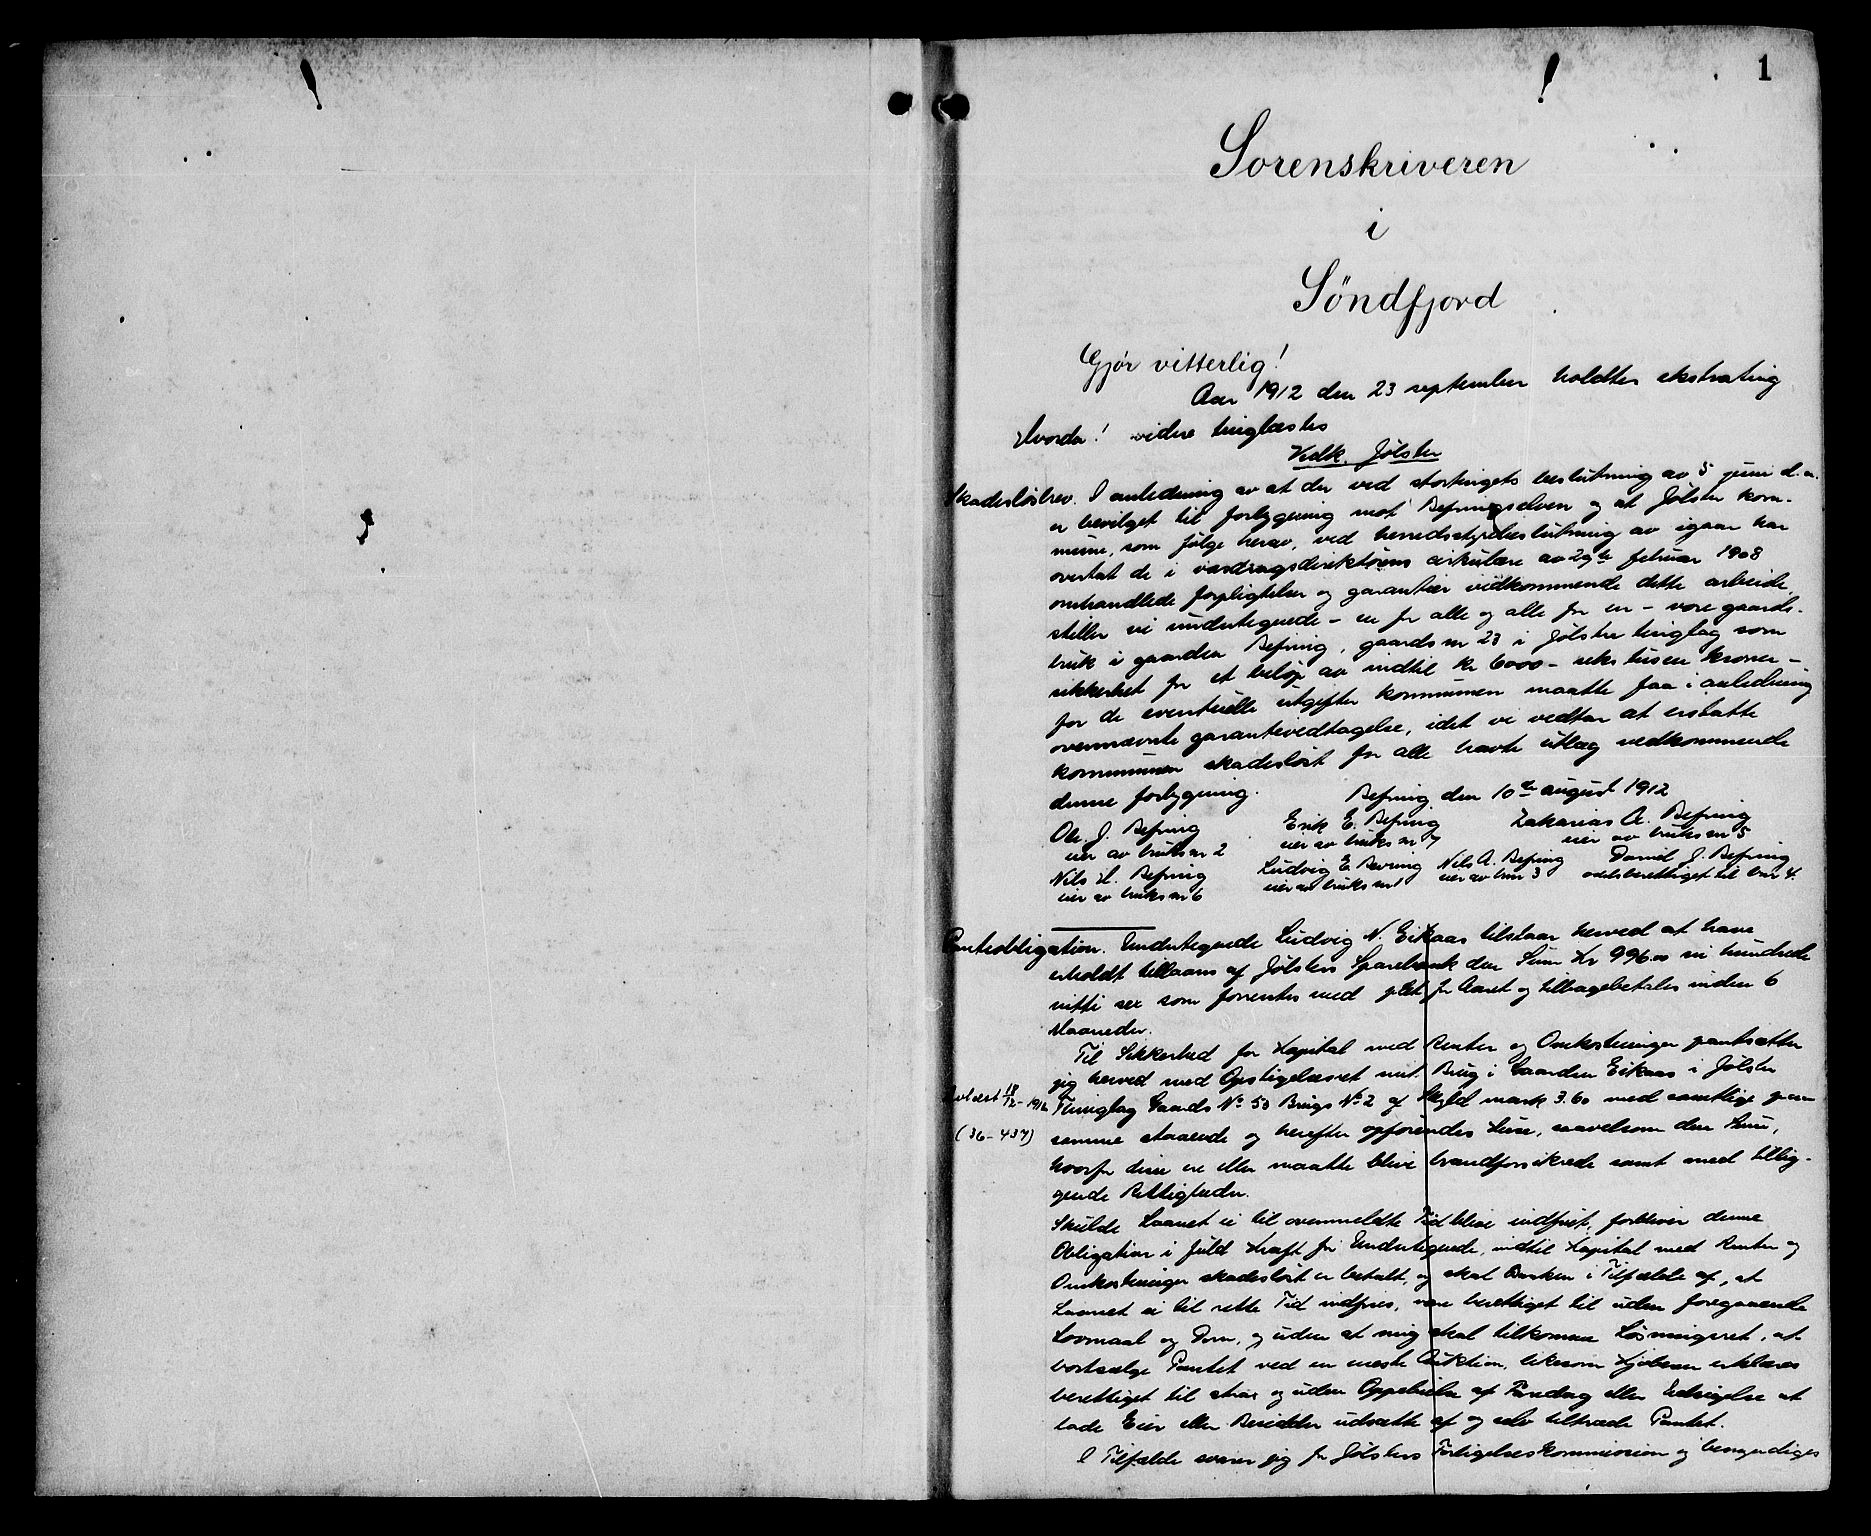 1
Sorenskriveren
i
Söndfjord
Gjør vitterlig!
Aar 1912 den 23 september holdtes ekstrating
Hvorda! videre tinglæstes
Vedk. Jølster
Skadesløsbrev. I anledning av at der ved stortingets beslutning av 5 juni d.a.
er bevilget til forbygning mot Befringselven og at Jølster kom-
mune, som følge herav, ved herredsstyrebeslutning av igaar har
overtat de i vasdragsdirektørens cirkulære av 29de februar 1908
omhandlede forpligtelser og garantier vedkommende dette arbeide,
stiller vi undertegnede - en for alle og alle for en - vore gaards-
bruk i gaarden Befring, gaardsnr 23 i Jølster tinglag som
sikkerhet for et beløp av indtil kr 6000 - seks tusen kroner -
for de eventuelle utgifter kommunen maatte faa i anledning
ovennævnte garantivedtagelse, idet vi vedtar at erstatte
kommunen skadesløst for alle havte utlæg vedkommende
denne forbygning.
Befring den 10de august 1912
Ole J. Befring Erik E. Befring Zakarias A. Befring
eier av bruksnr 2 eier av bruksnr 7 eier av bruksnr 5
Nils H. Befring Ludvig E. Bevring Nils A. Befring Daniel J. Befring
eier av bruksnr 6 eier av bruksnr 1 eier av bnr 3 odelsberettiget til bnr 4.
Panteobligation. Undertegnede Ludvig N. Eikaas tilstaar herved at have
erholdt tillaans af Jølsters Sparebank den Sum Kr 996.00 ni hundrede
nitti sex som forrentes med pCt for Aaret og tilbagebetales inden 6
Maaneder.
Til Sikkerhed for Kapital med Renter og Omkostninger pantsætter
jeg herved med Opstigelsesret mit Brug i Gaarden Eikaas i Jølster
Avlæst 18/12-1912 Thinglag Gaards No 50 Brugs No 2 af Skyld mark 3.60 med samtlige paa
(36-437) samme staaende og herefter opførendes Huse, saavelsom den Sum,
hvorfor disse er eller maatte blive brandforsikrede samt med tillig-
gende Rettigheder.
Skulde Laanet ei til ovenmeldte Tid blive indfriet, forbliver denne
Obligation i fuld Kraft for Undertegnede, indtil Kapital med Renter og
Omkostninger skadesløst er betalt, og skal Banken i Tilfælde af, at
Laanet ei til rette Tid indfries, være berettiget til uden foregaaende
Lovmaal og Dom, og uden at mig skal tilkomme Løsningsret, at
bortsælge Pantet ved en eneste Auktion, likesom Kjøberen erklæres
berettiget til strax og uden Oppebielse af Faredag eller Udsigelse at
lade Eier eller Besidder udsætte af og selv tiltræde Pantet.
I Tilfælde svarer jeg for Jølsters Forligelseskommission og bengendiges